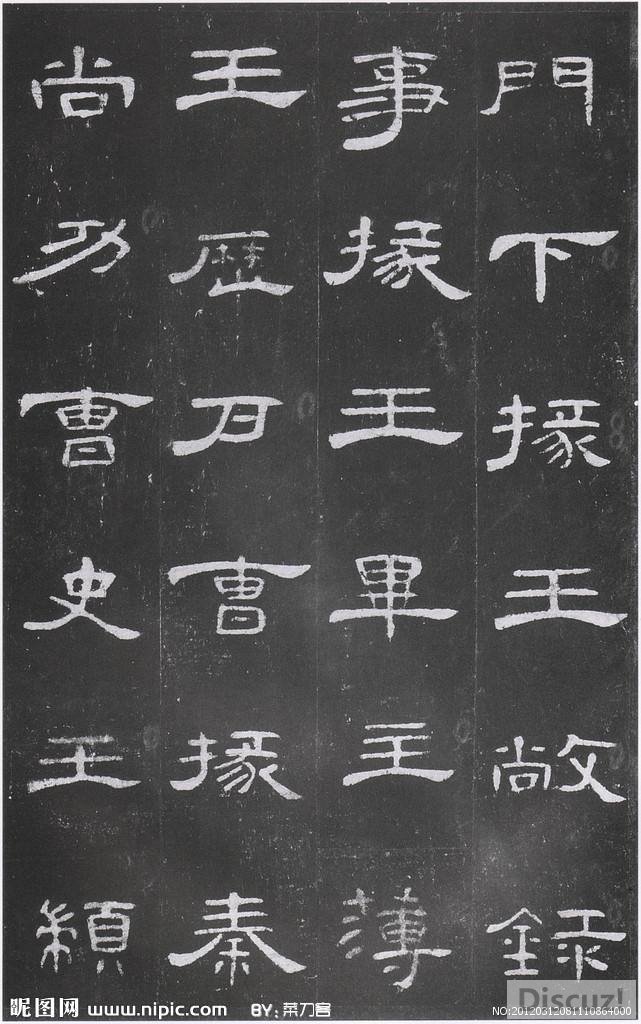 門下掾王敞錄
事掾王畢主薄
王歷戶曹掾秦
尚功曹史王顓
昵图网 www.nipic.com BY: 菜刀客 NO:20120312081110864000
Discuz!